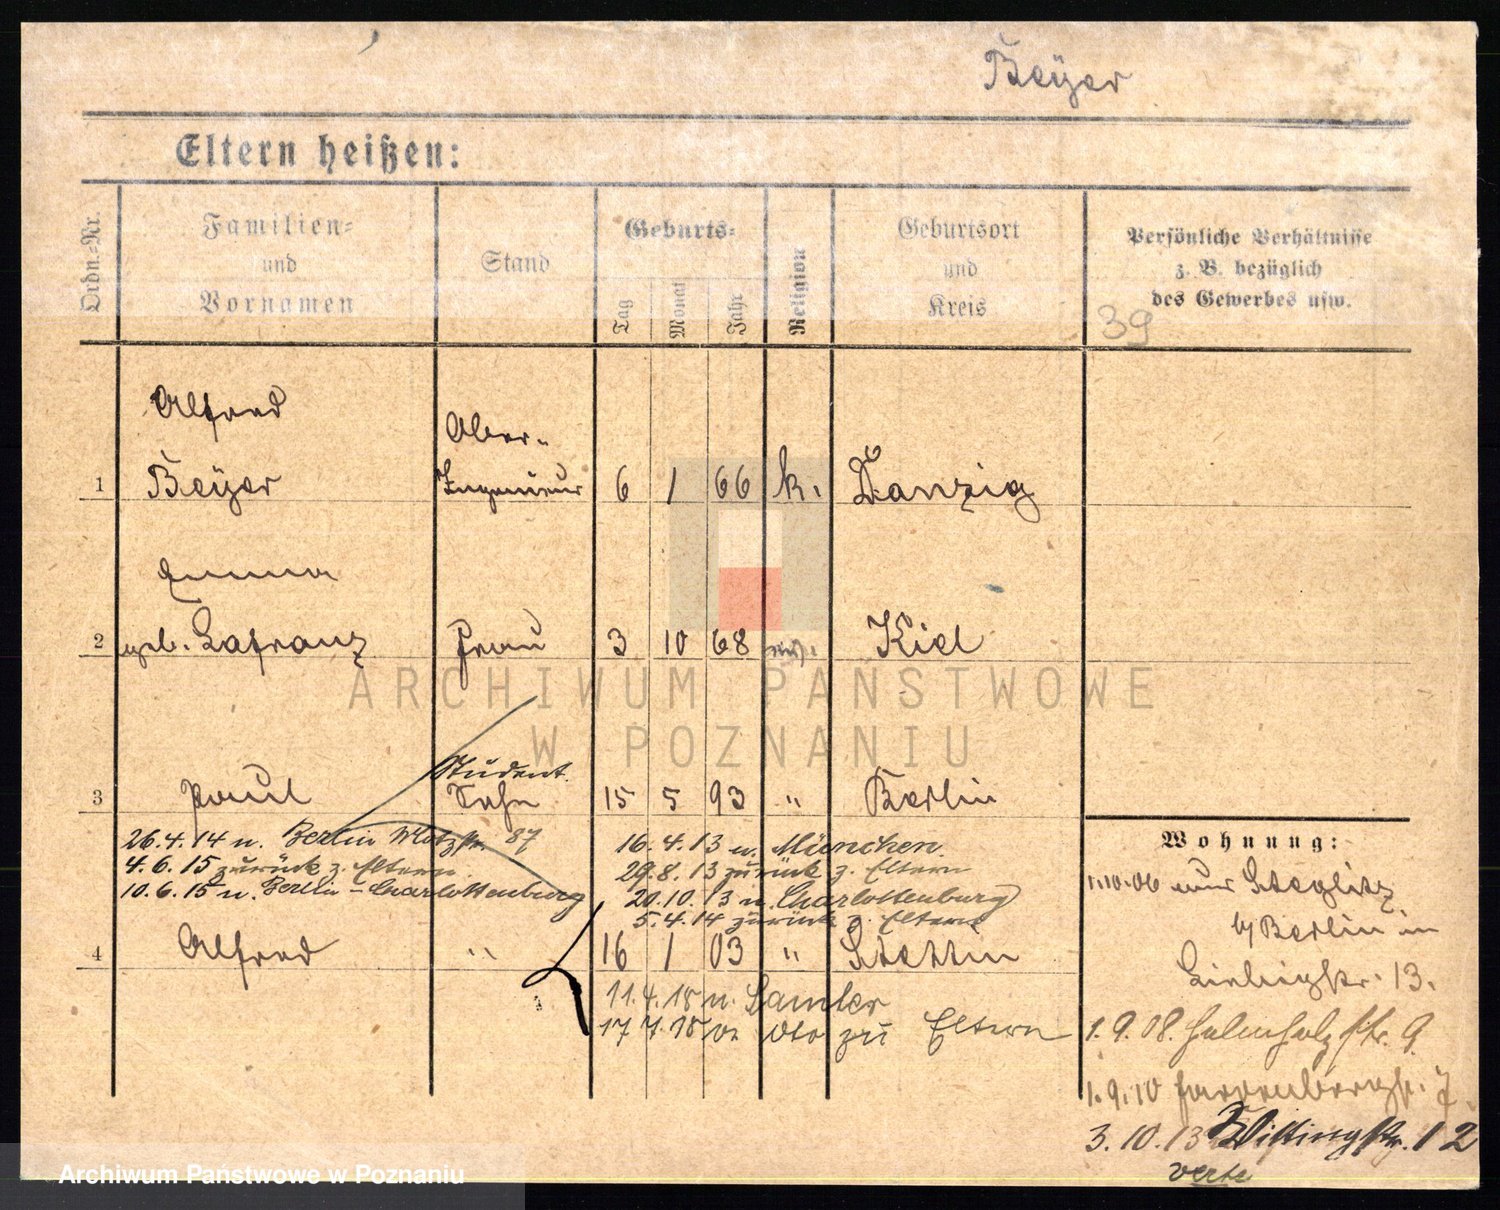 Beÿer
Eltern heißen:
Ordn.-Nr.
Familien-
und
Vornamen
Stand
Geburts-
Tag
Monat
Jahr
Religion
Geburtsort
und
Kreis
Persönliche Verhältnisse
z. B. bezüglich
des Gewerbes usw.
39
Alfred
Ober-
1 Beÿer Ingenieur 6 1 66 k. Danzig
Emma
2 geb. Lafranz Frau 3 10 68 Kiel
Student.
3 Paul Sohn 15 5 93 " Berlin
26.4.14 n. Berlin Motzstr. 87
4.6.15 zurück z. Eltern.
10.6.15 n. Berlin-Charlottenburg
16.4.13 n. München.
29.8.13 zurück z. Eltern
20.10.13 n. Charlottenburg
5.4.14 zurück z. Eltern
4 Alfred " 16 1 03 " Stettin
11.4.18 n. Samter
17.7.18 v. dto zu Eltern
Wohnung:
1.10.06 Steglitz
b/Berlin in
13.
1.9.08. str. 9
1.9.10 str. 7.
3.10.13 Wittingstr. 12
verte
ARCHIWUM PAŃSTWOWE
W POZNANIU
Archiwum Państwowe w Poznaniu